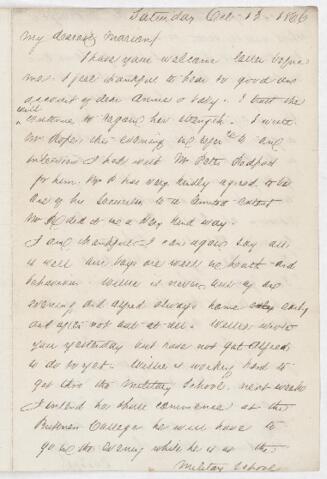 Saturday Oct 13 - 1866
My dearest Marian
I have your welcome letter before
me. I feel thankful to hear so good an
account of dear Annie & baby. I trust she
will
continue to regain her strength. I wrote
Mr Rope this evening in regard to an
interview I had with Mr Peter Redpath
for him. Mr R has very kindly agreed to be
one of his securities to a limited extent
Mr R did it in a very kind way.
I am thankful I can again say all
is well our boys are well in health and
behaviour. Willie is never out of an
evening and Alfred always home early
and often not out at all. Willie wrote
you yesterday but have not got Alfred
to do so yet. Willie is working hard to
get thro the Military School. next week
I intend he shall commence at the
Business College he will have to
go in the evening while he is at the
Military School